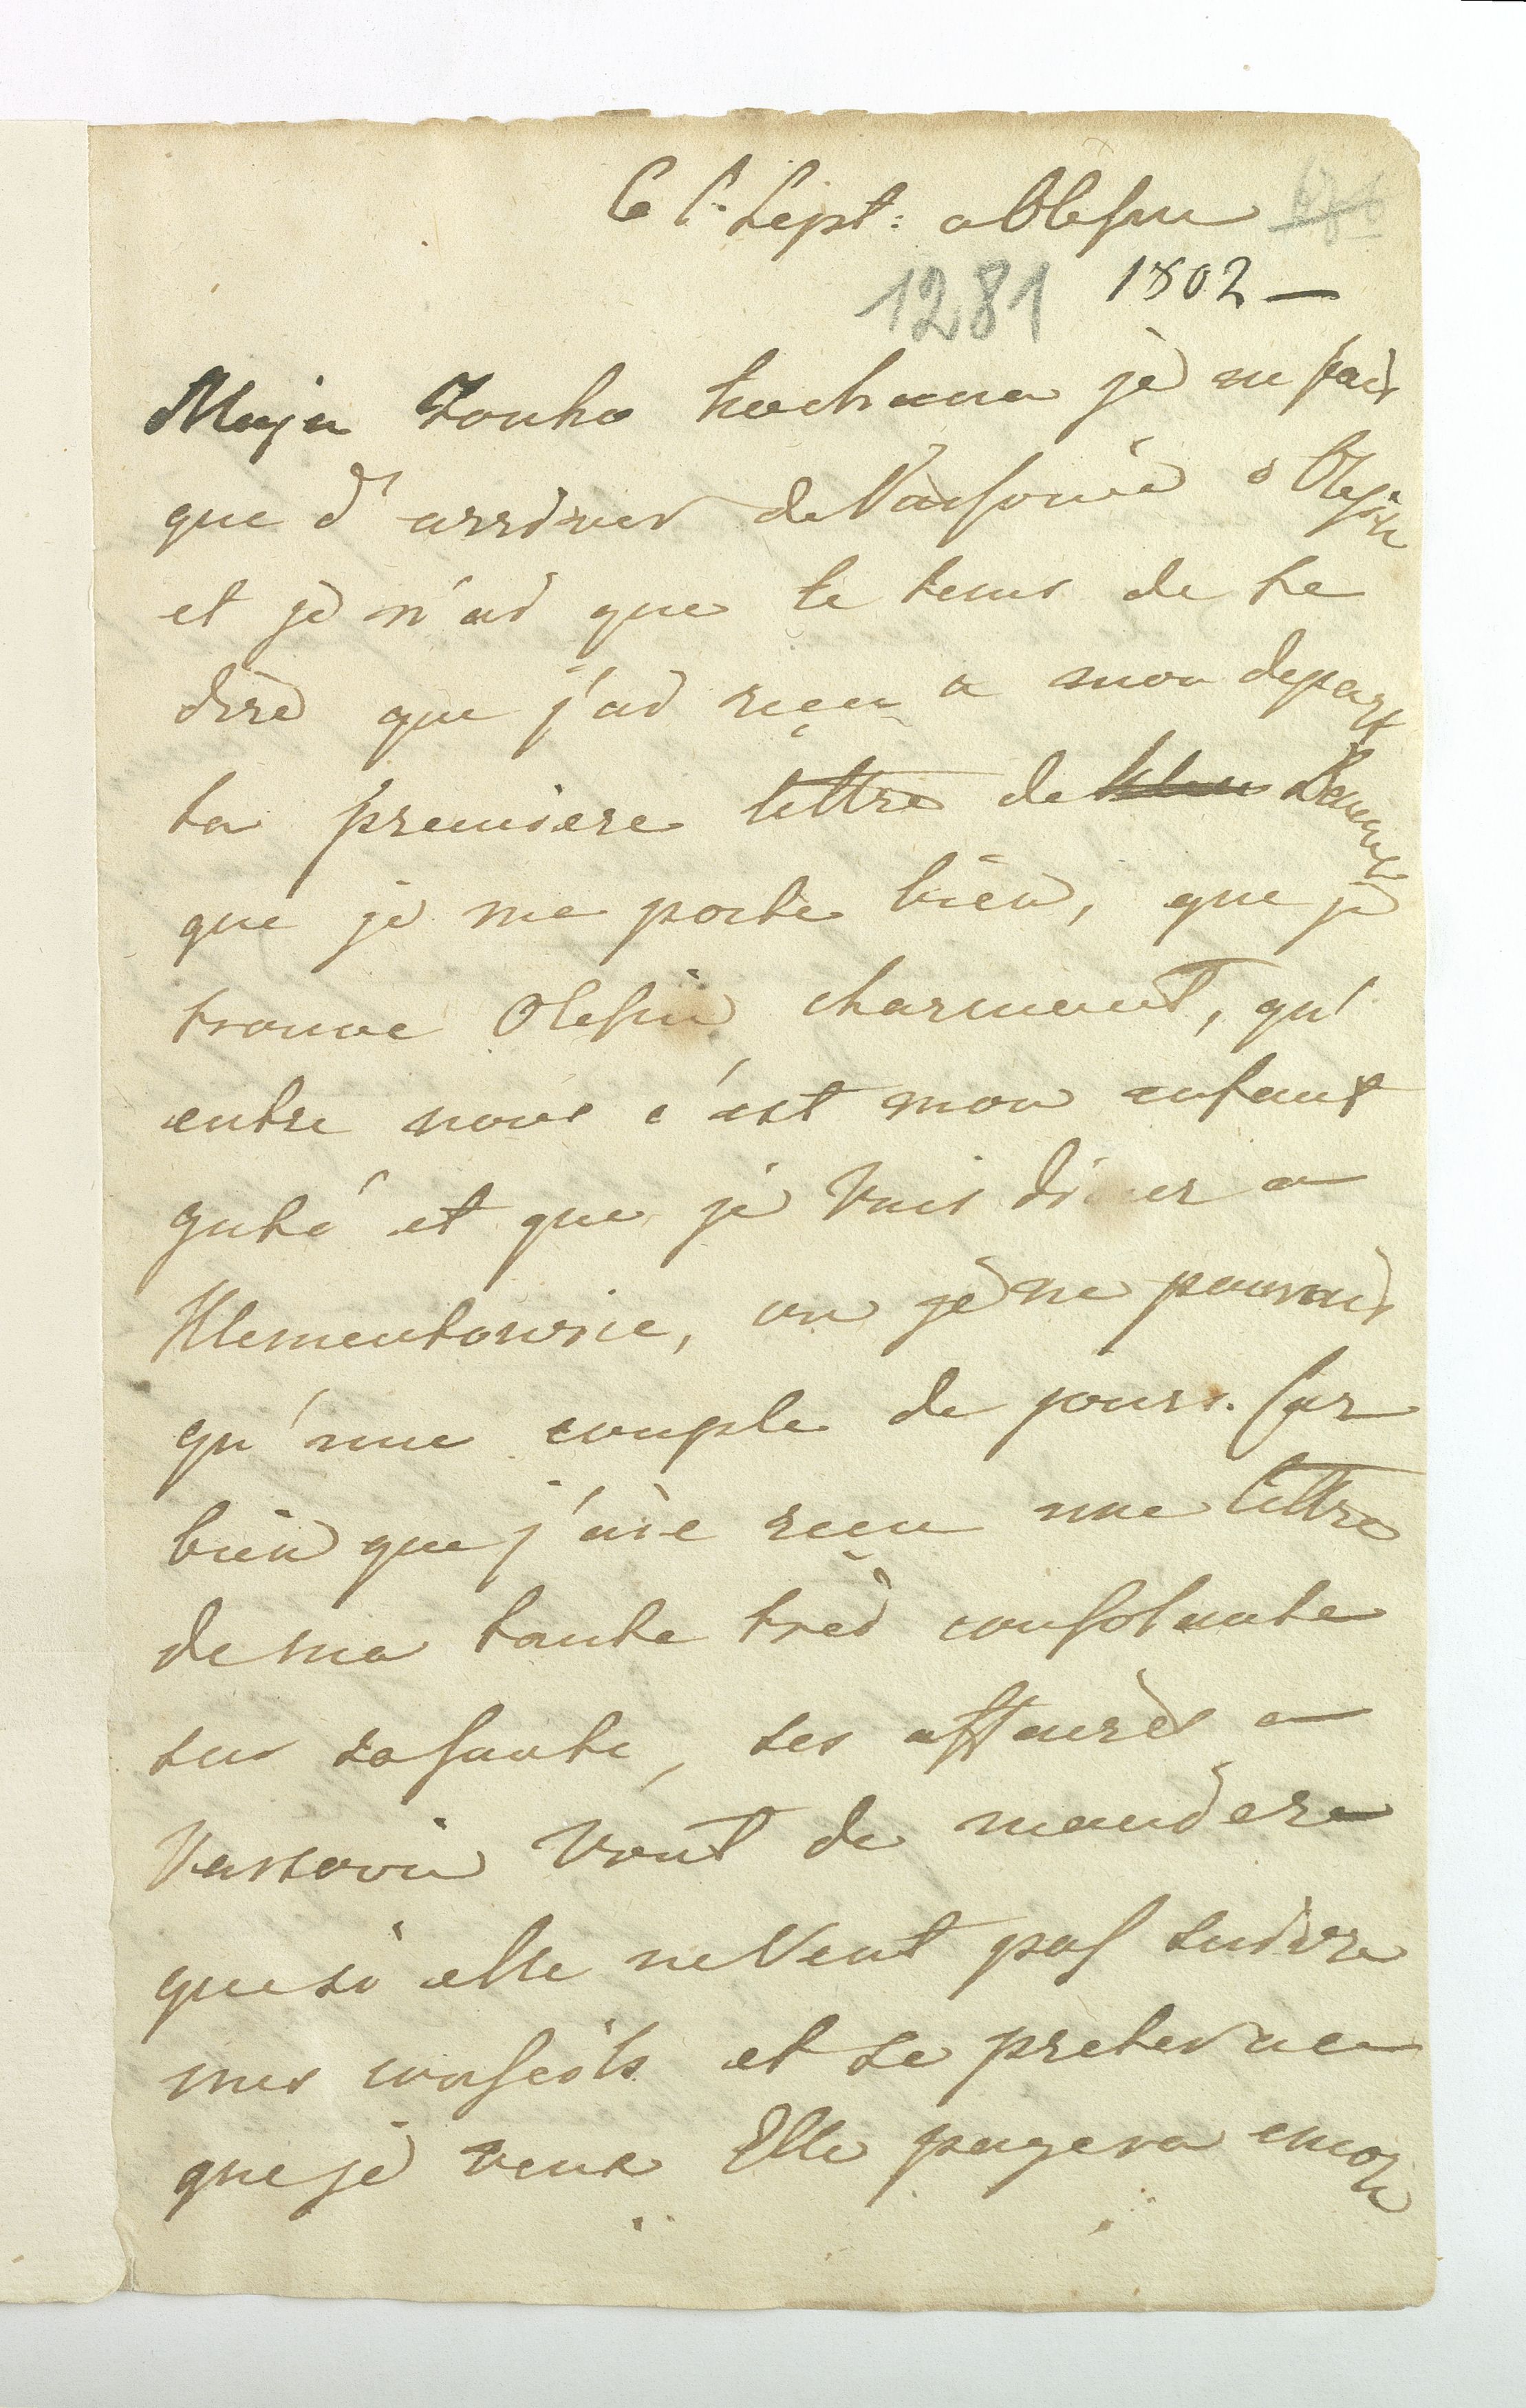 Ce 1. Sept: a Olesin
1281 1802 —
Moja Zonko kochana je ne fais
que d'arriver de Varsovie a Olesin
et je n'ai que le tems de te
dire que j'ai reçu a mon depart
ta premiere lettre de
que je me porte bien, que je
trouve Olesin charmant, qu'
entre nous c'est mon enfant
gaté et que je vais diner a
Klementowice, ou je ne pourrais
qu'une couple de jours. Car
bien que j'aie reçu une lettre
de ma tante tres consolante
sur sa santé, ses affaires a
Varsovie vont de maniere
que si elle ne veut pas suivre
mes conseils et se preter a ce
que je veux Elle payera encor